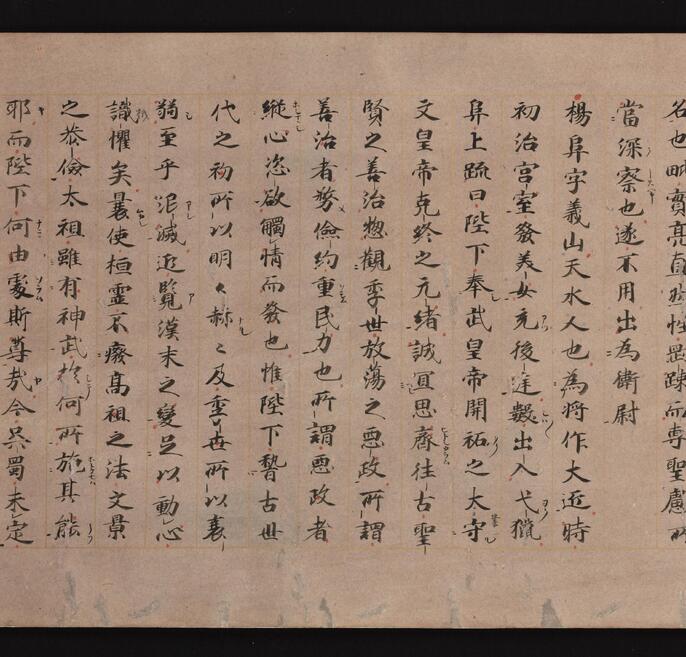 名也毗實亮直然性剛踈而專聖慮所
當深察也遂不用出為衛尉
楊阜字義山天水人也為將作大近時
初治宮室發美女充後庭數出入弋獵
阜上疏曰陛下奉武皇帝開祏之太守
文皇帝克終之元緒誠宜思齊往古聖
賢之善治惣觀季世放蕩之惡政所謂
善治者務儉約重民力也所謂惡政者
縱心恣欲觸情而發也惟陛下稽古世
代之初所以明々赫々及季世所以衰
弱至乎泯滅近覽漢末之變足以動心
誡懼矣曩使桓靈不癈高祖之法文景
之恭儉太祖雖有神武於何所施其能
耶而陛下何由處斯尊哉今吳蜀未定